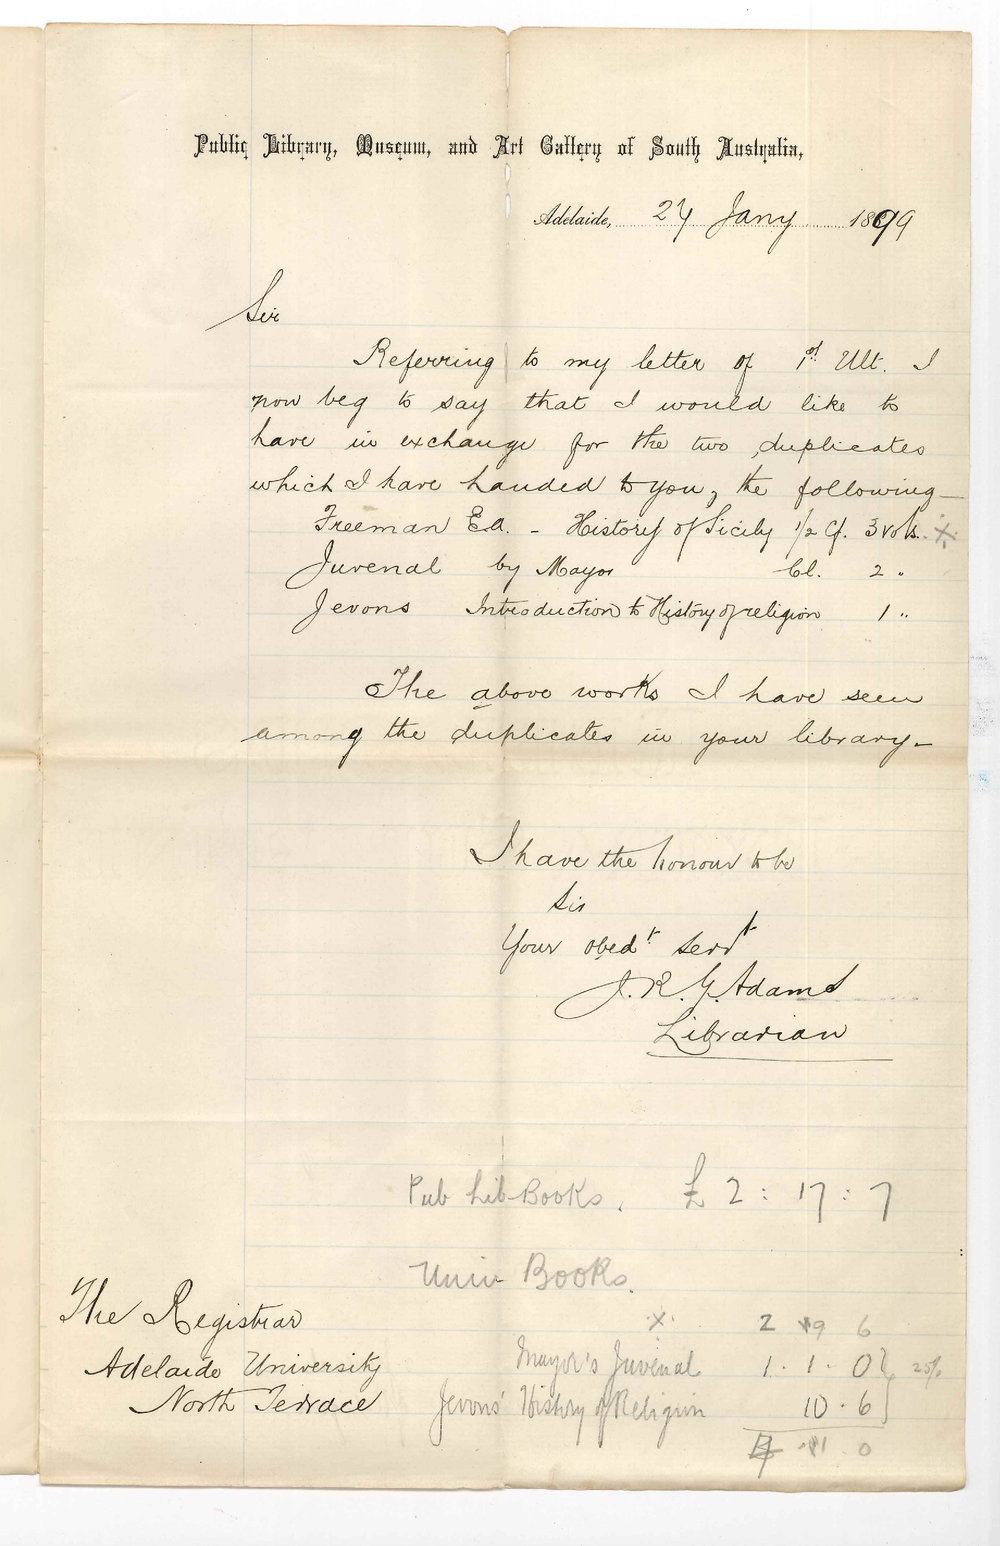 Public Library, Museum, and Art Gallery of South Australia,
Adelaide, 24 Jany 1899
Sir
Referring to my letter of 1st Ult. I
now beg to say that I would like to
have in exchange for the two duplicates
which I have handed to you, the following—
Freeman E.A. – History of Sicily 1/2 Cf. 3 vols. x
Juvenal by Mayor Cl. 2 "
Jevons Introduction to History of religion 1 "
The above works I have seen
among the duplicates in your library—
I have the honour to be
Sir
Your obedt servt
J. R. G. Adams
Librarian
Pub Lib Books. £ 2 : 17 : 7
Univ Books.
x 2 19 6
Mayor's Juvenal 1 . 1 . 0 } 25%
Jevons' History of Religion 10 . 6
11 . 0
The Registrar
Adelaide University
North Terrace